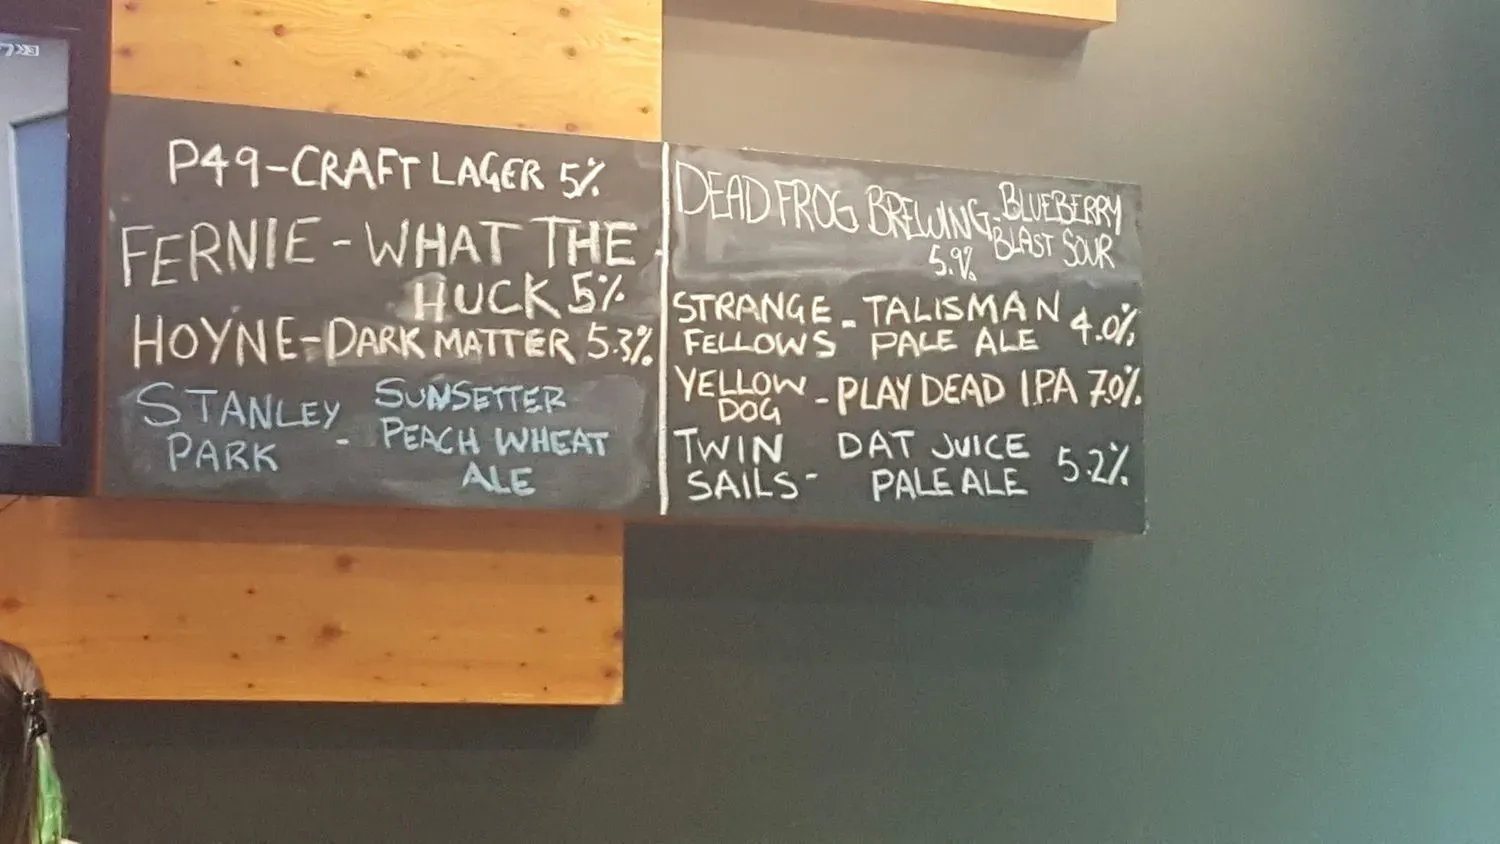 P49-CRAFT LAGER 5%
FERNIE - WHAT THE
HUCK 5%
HOYNE-DARK MATTER 5.3%
STANLEY PARK - SUNSETTER
PEACH WHEAT
ALE
DEAD FROG BREWING - BLUEBERRY
BLAST SOUR
5.9%
STRANGE FELLOWS - TALISMAN
PALE ALE 4.0%
YELLOW DOG - PLAY DEAD I.P.A 7.0%
TWIN SAILS - DAT JUICE
PALE ALE 5.2%